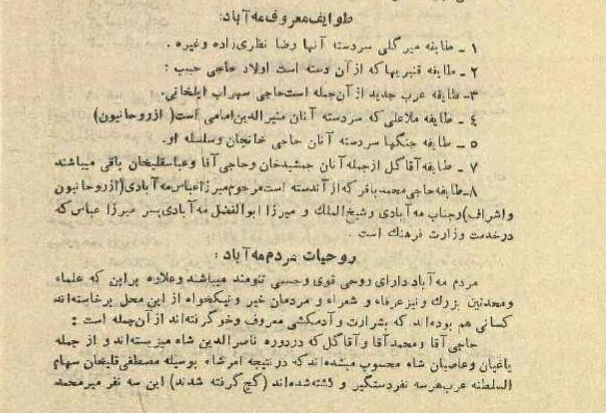 طوایف معروف مه آباد:
۱ ـ طایفه میر گلی سردسته آنها رضا نظری‌زاده وغیره .
۲ ـ طایفه قنبریها که از آن دسته است اولاد حاجی حبیب :
۳ـ طایفه عرب جدید از آن‌جمله است حاجی سهراب ایلخانی.
٤ ـ طایفه ملاعلی که سردسته آنان منیرالدین‌امامی است( ازروحانیون)
٥ ـ طایفه جنگها سردسته آنان حاجی خانجان وسلسله او.
۷ ـ طایفه آقاگل ازجمله آنان جمشیدخان وحاجی آقا وعباسقلیخان باقی میباشند
۸ـطایفه‌حاجی‌محمدباقر که‌از آندسته است‌مرحوم‌میرزاعباس‌مه‌آبادی(ازروحانیون
واشراف)وجناب مه آبادی وشیخ‌الملك و میرزا ابوالفضل مه آبادی‌پسر میرزا عباس‌که
درخدمت وزارت فرهنك است .
روحیات مردم مه آباد :
مردم مه آباد دارای روحی قوی وجسمی تنومند میباشند وعلاوه براین که علماء
ومحدثین بزرك ونیز عرفاء و شعراء و مردمان خیر و نیکخواه از این محل برخاسته‌اند
کسانی هم بوده‌اند که بشرارت و آدمکشی معروف وخو گرفته‌اند از آن‌جمله است :
حاجی آقا ومحمدآقا وآقاگل که دردوره ناصرالدین شاه میزیسته‌اند و از جمله
یاغیان وعاصیان شاه محسوب میشده‌اند که در نتیجه امرشاه بوسیله مصطفی‌قلیخان سهام
السلطنه عرب‌هرسه نفردستگیر و کشته‌شده‌اند (گچ گرفته شدند) این سه نفر میرمحمد